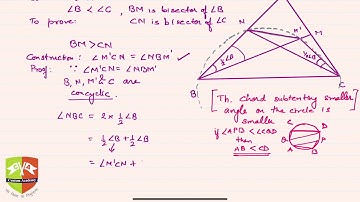 ∠B < ∠C , BM is bisector of ∠B
To prove: CN is bisector of ∠C
BM > CN
Construction: ∠M'CN = ∠NBM'
Proof: ∵ ∠M'CN = ∠NBM'
B, N, M' & C
are
concyclic.
∠NBC = 2 x ½∠B
= ½∠B + ½∠B
= ∠M'CN +
A
N
M'
M
½∠B
½∠C
B
C
[Th. Chord subtending smaller
angle on the circle is
smaller
if ∠APB < ∠CQD
then
AB < CD
C
D
Q
P
A
B